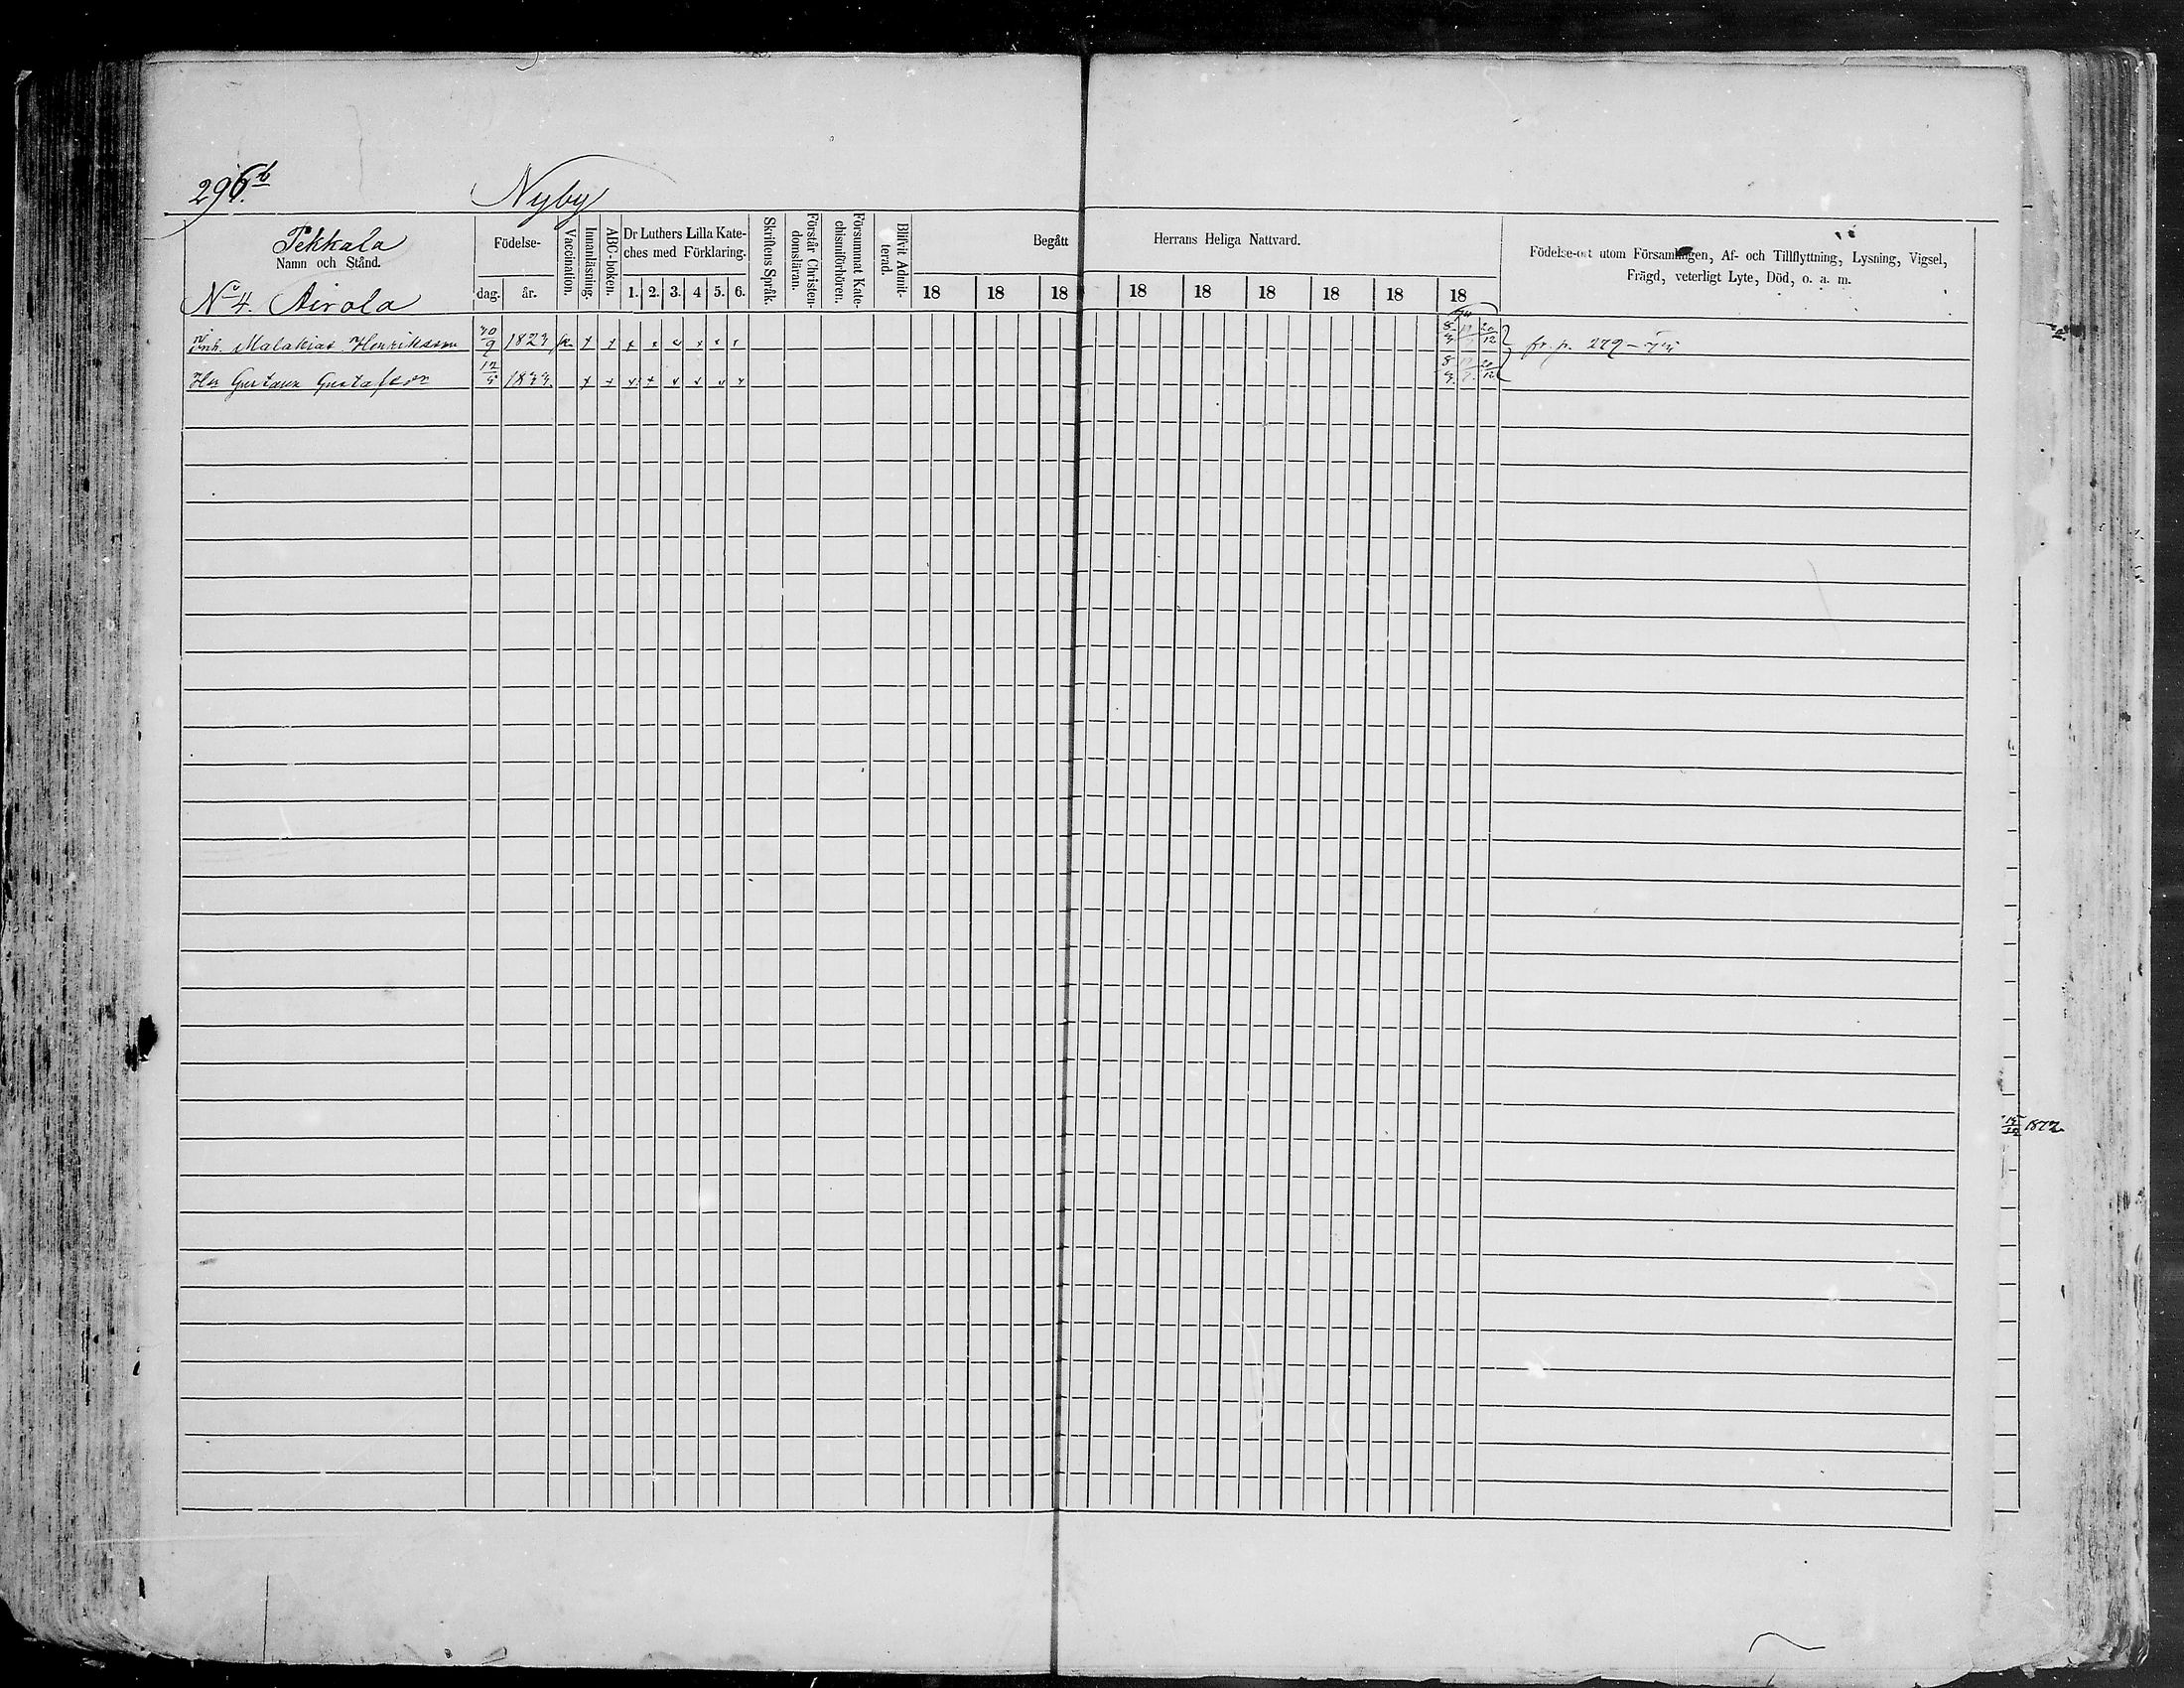 296.b
Nyby
Pekkala
Namn och Stånd.
N 4. Airola
Födelse-
dag. år.
Vaccination.
Innanläsning.
ABC-boken.
Dr Luthers Lilla Kate-
ches med Förklaring.
1. 2. 3. 4 5. 6.
Skriftens Språk.
Förstår Christen-
domsläran.
Försummat Kate-
chismiförhören.
Blifvit Admit-
terad.
Begått Herrans Heliga Nattvard.
18 18 18 18 18 18 18 18 18
Födelse-ort utom Församlingen, Af- och Tillflyttning, Lysning, Vigsel,
Frägd, veterligt Lyte, Död, o. a. m.
Malakias Henriksson 30/9 1823 x x x x x x x x 8 17 20/12 fr. p. 279
Gustava Gustafsdr 12/5 1833 x x x x x x x x 8 17 20/12
1872